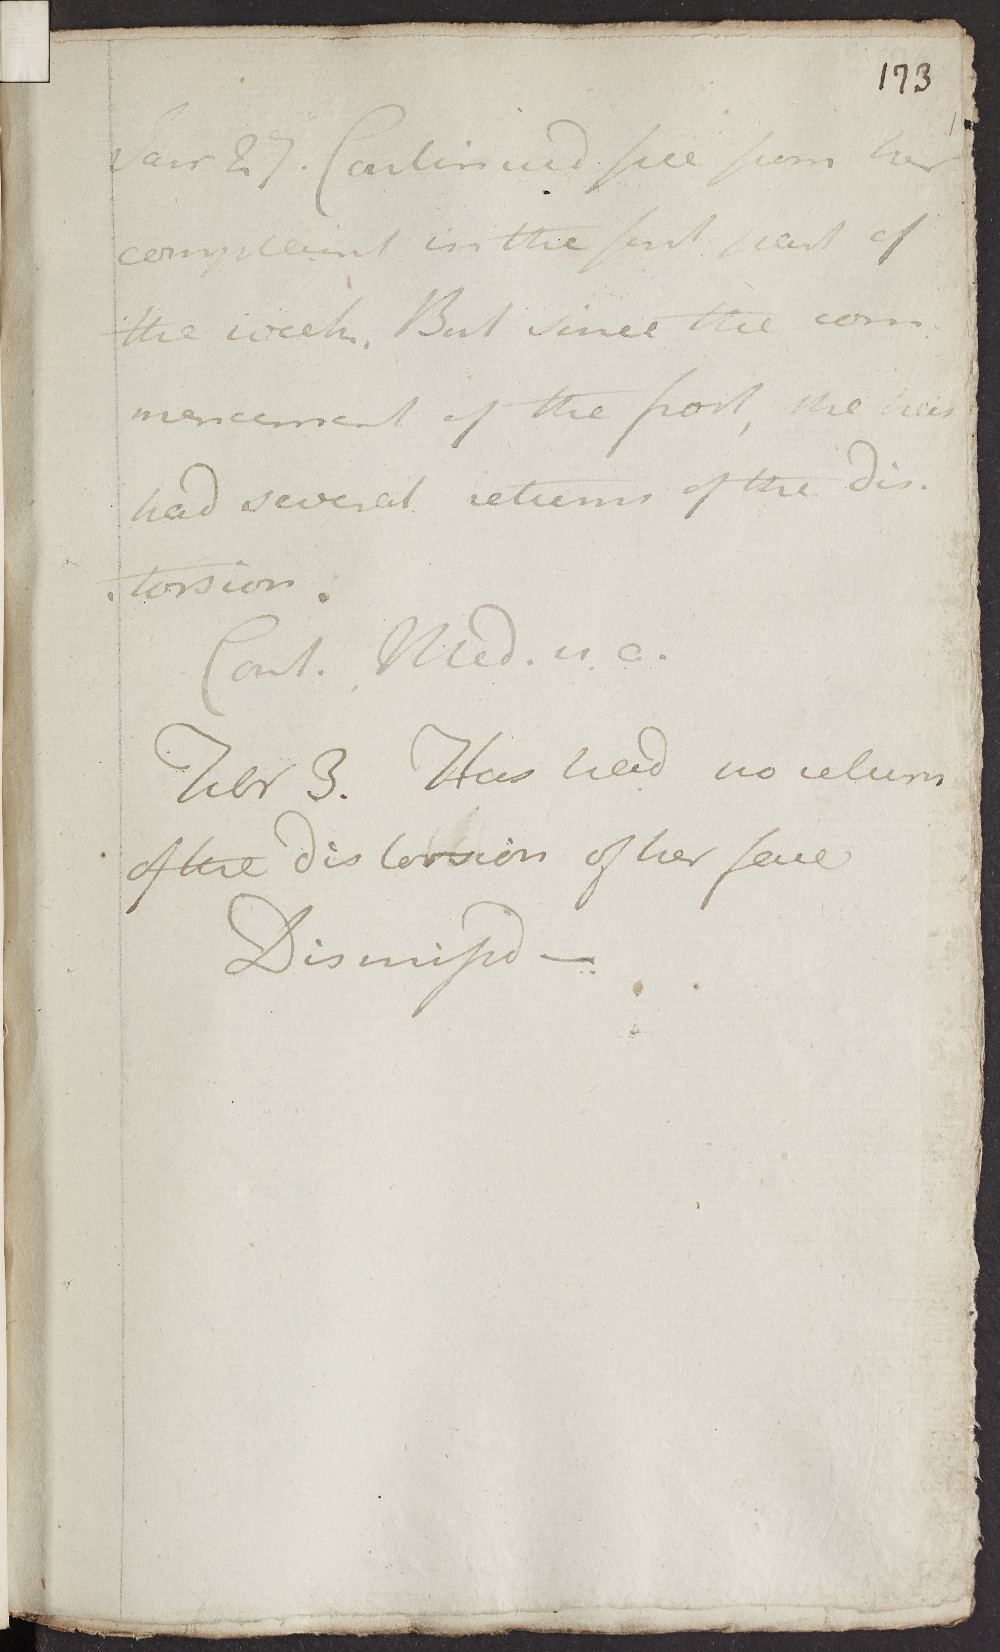 173
Janr 27. Continued free from her
complaint in the first part of
the week. But since the com
mencement of the frost, she has
had several returns of the dis-
torsion.
Cont. Med. u. a.
Febr 3. Has had no return
of the distorsion of her face
Dismissd —